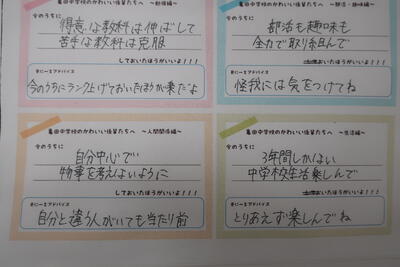 亀田中学校のかわいい後輩たちへ ～勉強編～
今のうちに
得意な教科は伸ばして
苦手な教科は克服
しておいたほうがいいよ!!!
今のうちにランク上げておいたほうが楽だよ
亀田中学校のかわいい後輩たちへ ～部活・趣味編～
今のうちに
部活も趣味も
全力で取り組んで
おいたほうがいいよ!!!
怪我には気をつけてね
亀田中学校のかわいい後輩たちへ ～人間関係編～
今のうちに
自分中心で
物事を考えないように
しておいたほうがいいよ!!!
アドバイス
自分と違う人がいても当たり前
亀田中学校のかわいい後輩たちへ ～生活編～
今のうちに
3年間しかない
中学校生活楽しんで
おいたほうがいいよ!!!
アドバイス
とりあえず楽しんでね